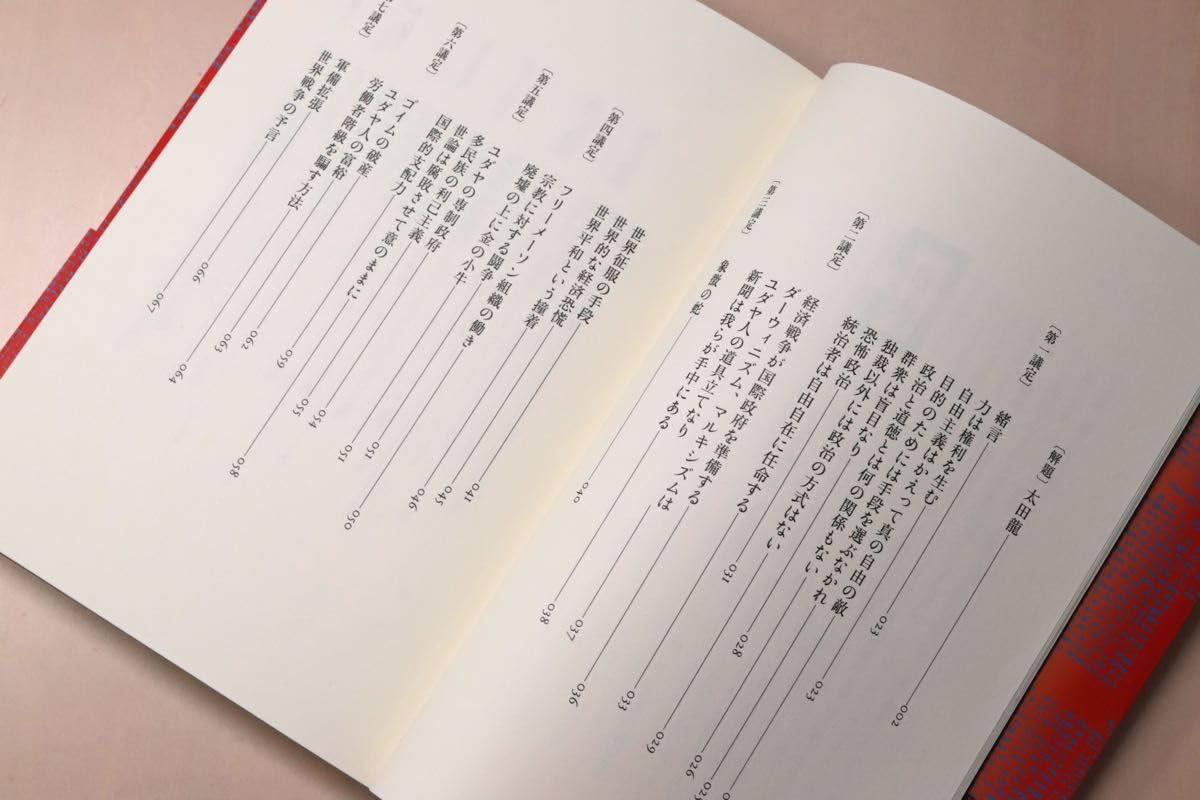 〔解題〕太田龍 002
〔第一議定〕
緒言 023
力は権利を生む 023
自由主義はかえって真の自由の敵 025
目的のためには手段を選ぶなかれ
政治と道徳とは何の関係もない 026
群衆は盲目なり 028
独裁以外には政治の方式はない 029
恐怖政治 031
〔第二議定〕
経済戦争が国際政府を準備する 033
統治者は自由自在に任命する 036
ダーウィニズム、マルキシズムは
ユダヤ人の道具立てなり 037
新聞は我らが手中にある 038
〔第三議定〕
象徴の蛇 040
世界征服の手段 041
世界的な経済恐慌 045
世界平和という撞着 046
〔第四議定〕
フリーメーソン組織の働き 050
宗教に対する闘争 051
廃墟の上に金の小牛 051
〔第五議定〕
ユダヤの専制政府 054
多民族の利己主義 055
世論は腐敗させて意のままに 058
国際的支配力 059
〔第六議定〕
ゴイムの破産 062
ユダヤ人の富裕 063
労働者階級を騙す方法 064
七議定〕
軍備拡張 066
世界戦争の予言 067